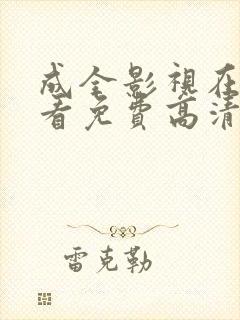 成全影視在
看免費高清
雷克勒